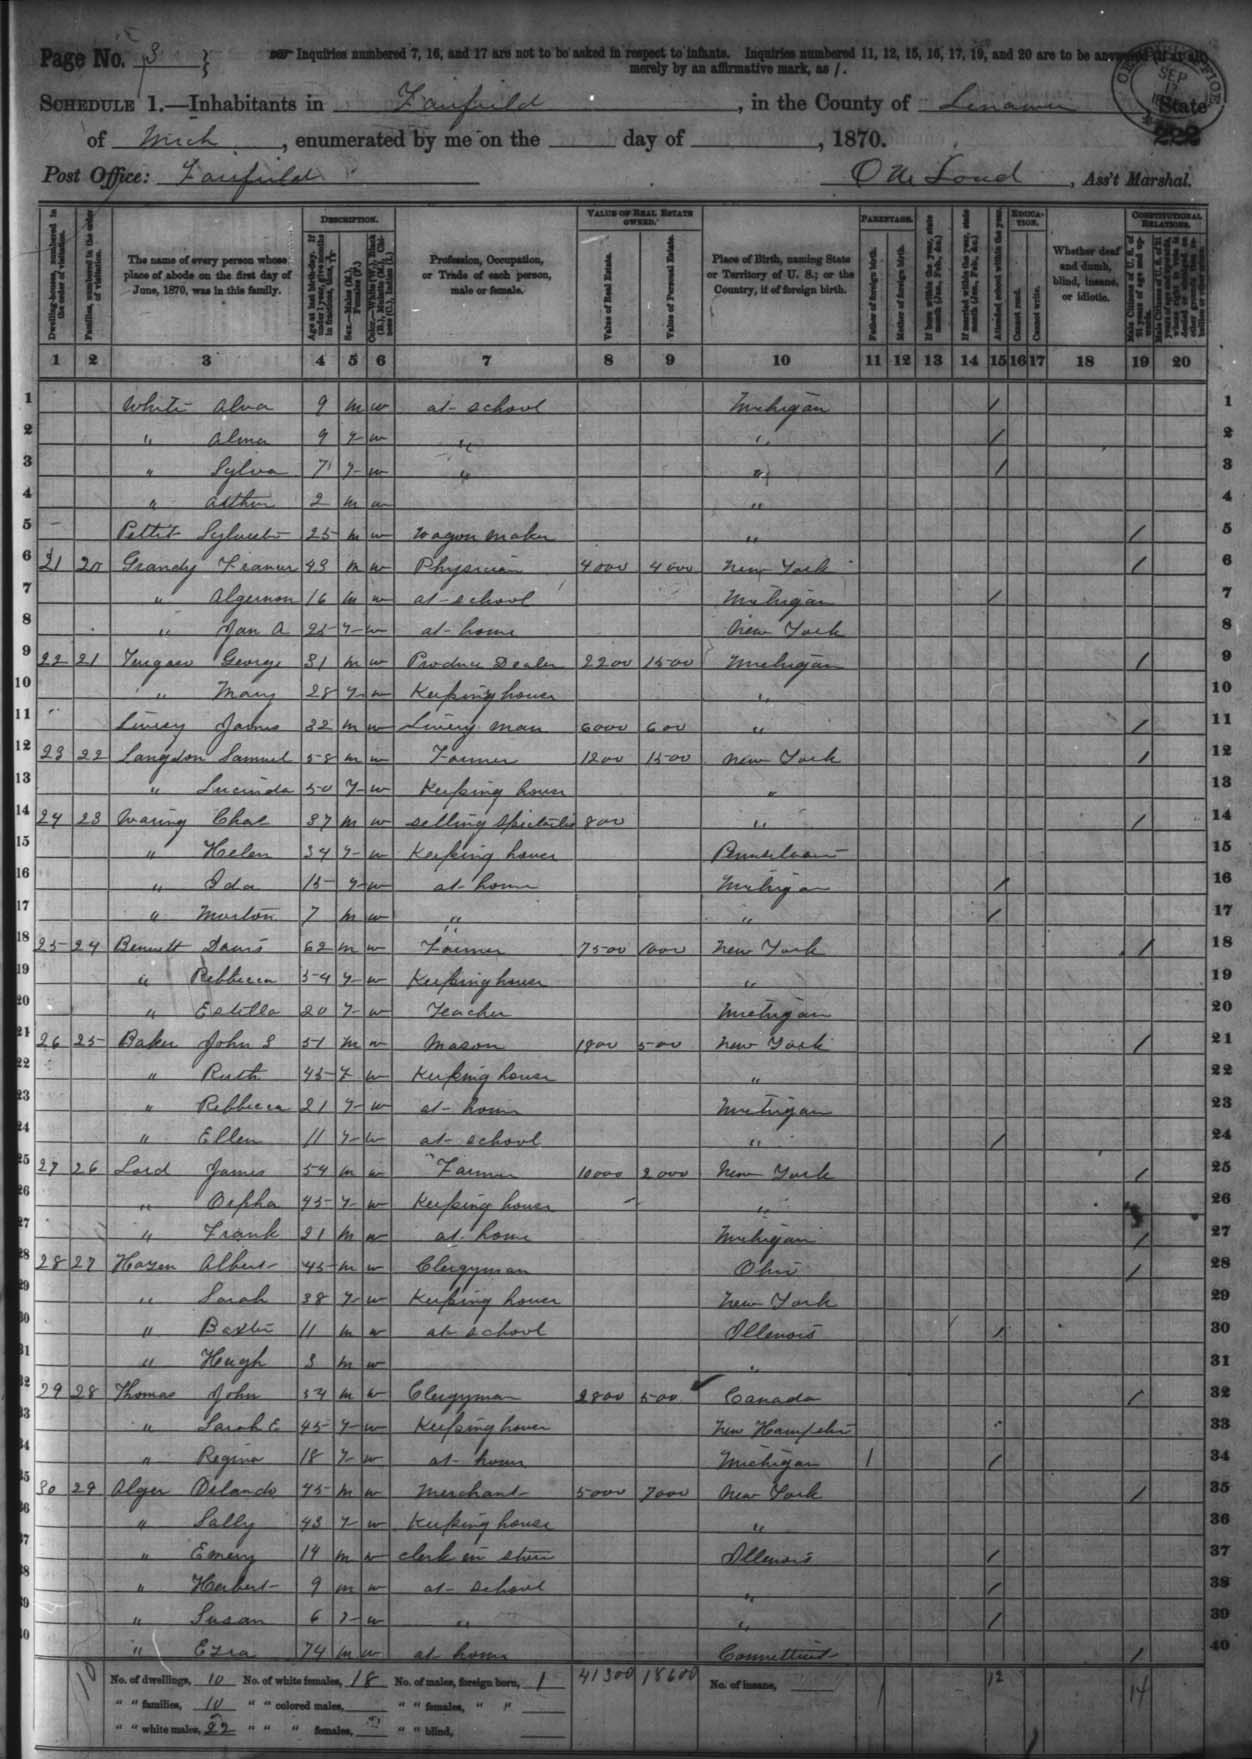 Page No. 3
Inquiries numbered 7, 16, and 17 are not to be asked in respect to infants. Inquiries numbered 11, 12, 15, 16, 17, 19, and 20 are to be answered
merely by an affirmative mark, as /.
SCHEDULE 1.—Inhabitants in Fairfield, in the County of Lenawee State
of Mich, enumerated by me on the day of , 1870.
222
Post Office: Fairfield , Ass't Marshal.
DESCRIPTION. VALUE OF REAL ESTATE OWNED. PARENTAGE. EDUCATION. CONSTITUTIONAL RELATIONS.
Dwelling-houses, numbered in the order of visitation.
Families, numbered in the order of visitation.
The name of every person whose place of abode on the first day of June, 1870, was in this family.
Profession, Occupation, or Trade of each person, male or female.
Value of Real Estate.
Value of Personal Estate.
Place of Birth, naming State or Territory of U. S.; or the Country, if of foreign birth.
Father of foreign birth.
Mother of foreign birth.
Attended school within the year.
Cannot read.
Cannot write.
Whether deaf and dumb, blind, insane, or idiotic.
1 2 3 4 5 6 7 8 9 10 11 12 13 14 15 16 17 18 19 20
1 White Alva 9 m w at school Michigan / 1
2 " Alma 9 F w " " / 2
3 " Sylva 7 F w " " / 3
4 " Arthur 2 m w " 4
5 Pettit Sylvester 25 m w Wagon Maker " / 5
6 21 20 Grandy Francis 43 m w Physician 4000 4000 New York / 6
7 " Algernon 16 m w at school Michigan / 7
8 " Jan A 25 F w at home New York 8
9 22 21 George 31 m w Produce Dealer 2200 1500 Michigan / 9
10 " Mary 28 F w Keeping house " 10
11 Livesy James 32 m w Livery man 6000 600 " / 11
12 23 22 Langdon Samuel 58 m w Farmer 1200 1500 New York / 12
13 " Lucinda 50 F w Keeping house " 13
14 24 23 Waring Chas 37 m w selling spectacles 800 " / 14
15 " Helen 34 F w Keeping house 15
16 " Ida 15 F w at home Michigan / 16
17 " Morton 7 m w " " / 17
18 25 24 Bennett Davis 62 m w Farmer 7500 1000 New York / 18
19 " Rebbecca 54 F w Keeping house " 19
20 " Estella 20 F w Teacher Michigan 20
21 26 25 Baker John S 51 m w Mason 1800 500 New York / 21
22 " Ruth 45 F w Keeping house " 22
23 " Rebbecca 21 F w at home Michigan 23
24 " Ellen 11 F w at school " / 24
25 27 26 Lord James 54 m w Farmer 10000 2000 New York / 25
26 " Orpha 45 F w Keeping house " 26
27 " Frank 21 m w at home Michigan / 27
28 28 27 Hazen Albert 45 m w Clergyman Ohio / 28
29 " Sarah 38 F w Keeping house New York 29
30 " Baxter 11 m w at school Illenois / 30
31 " Hugh 3 m w " 31
32 29 28 Thomas John 54 m w Clergyman 2800 500 Canada / 32
33 " Sarah E 45 F w Keeping house 33
34 " Regina 18 F w at home Michigan 1 / 34
35 30 29 Alger Orlando 45 m w Merchant 5000 7000 New York / 35
36 " Sally 43 F w Keeping house " 36
37 " Emery 14 m w clerk in store Illenois / 37
38 " Herbert 9 m w at school " / 38
39 " Susan 6 F w " " / 39
40 " Ezra 74 m w at home / 40
No. of dwellings, 10 No. of white females, 18 No. of males, foreign born, 1 41300 18600 No. of insane, 1 12 14
" " families, 10 " " colored males, " " females, " "
" " white males, 22 " " " females, " " blind,